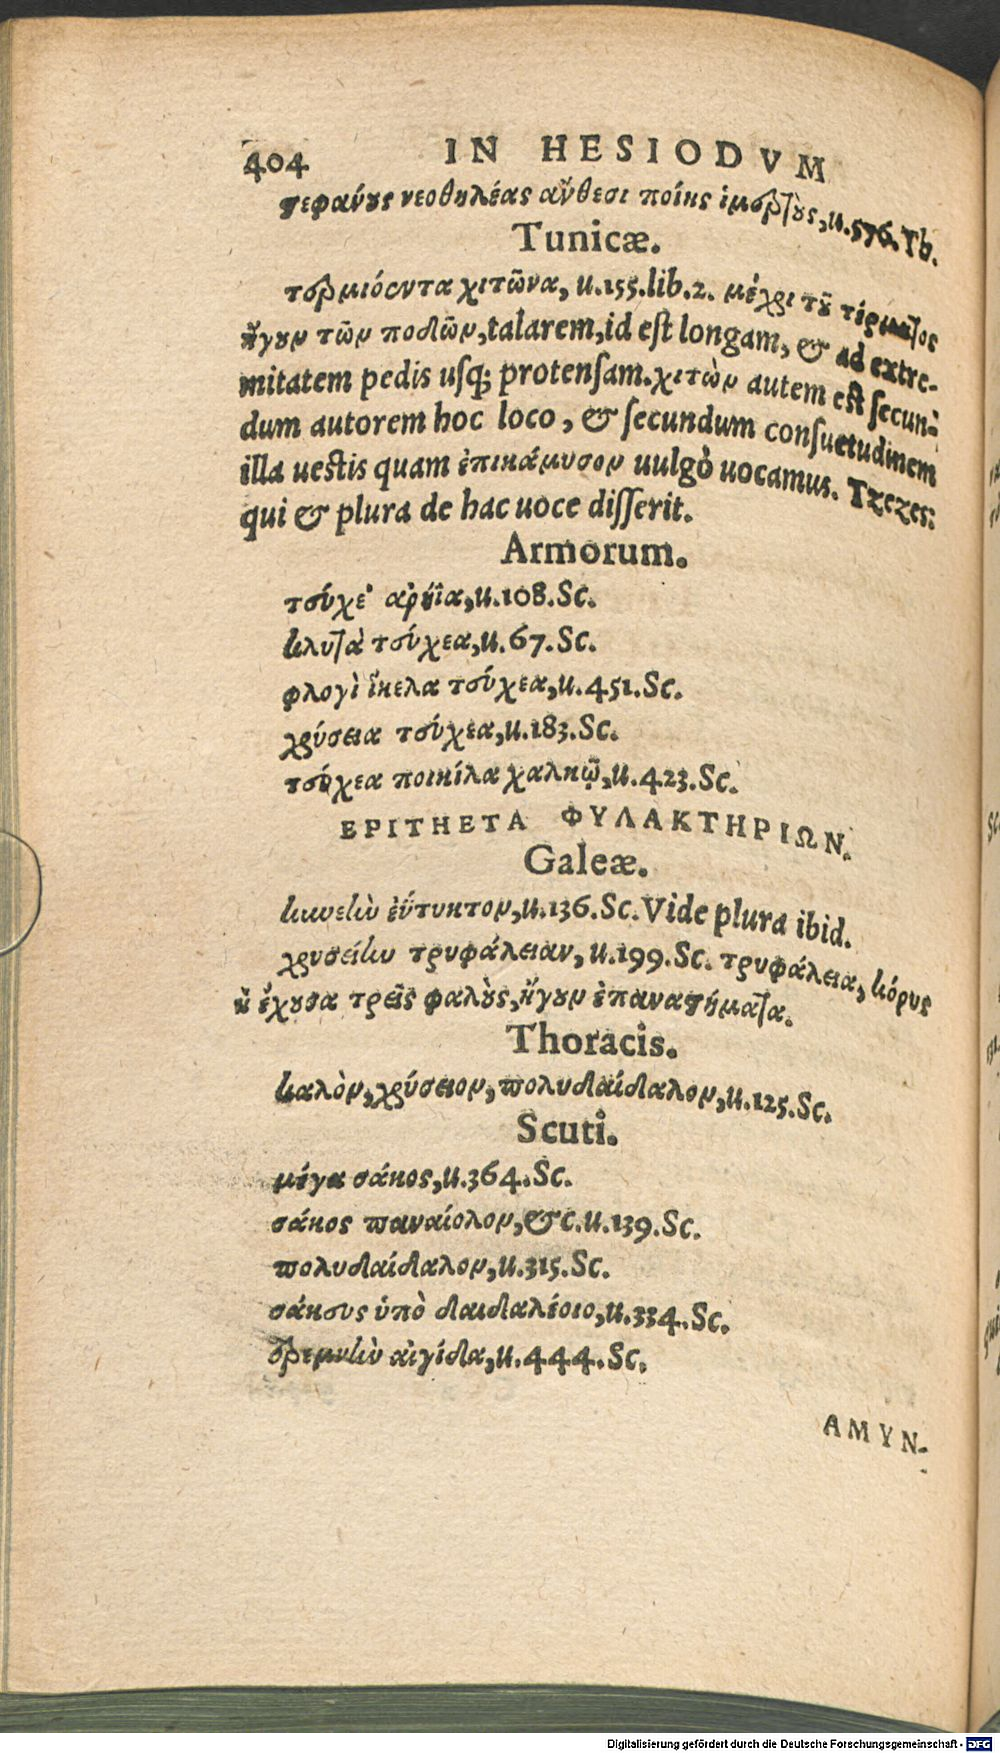 404 IN HESIODVM
στεφανους νεοθηλέας ἄνθεσι ποίης ἱμερτοὺς, u.576. Th.
Tunicæ.
τερμιόεντα χιτῶνα, u.155.lib.2. μέχρι τοῦ τέρματος
ἤγουν τῶν ποδῶν, talarem, id est longam, & ad extre-
mitatem pedis usq; protensam. χιτὼν autem est secun-
dum autorem hoc loco, & secundum consuetudinem
illa uestis quam ἐπικάμυσον uulgò uocamus. Tzezes:
qui & plura de hac uoce disserit.
Armorum.
τεύχε' ἀρήϊα, u.108.Sc.
κλυτὰ τεύχεα, u.67.Sc.
φλογὶ ἴκελα τεύχεα, u.451.Sc.
χρύσεια τεύχεα, u.183.Sc.
τεύχεα ποικίλα χαλκῷ, u.423.Sc.
EPITHETA ΦΥΛΑΚΤΗΡΙΩΝ.
Galeæ.
κυνέην ἐΰτυκτον, u.136.Sc. Vide plura ibid.
χρυσείην τρυφάλειαν, u.199.Sc. τρυφάλεια, κόρυς
ἡ ἔχουσα τρεῖς φαλοὺς, ἤγουν ἐπαναστήματα.
Thoracis.
καλὸν, χρύσειον, πολυδαίδαλον, u.125.Sc.
Scuti.
μέγα σάκος, u.364.Sc.
σάκος παναίολον, &c. u.139.Sc.
πολυδαίδαλον, u.315.Sc.
σάκευς ὑπὸ δαιδαλέοιο, u.334.Sc.
ἐρεμνὴν αἰγίδα, u.444.Sc.
ΑΜΥΝ-
Digitalisierung gefördert durch die Deutsche Forschungsgemeinschaft - DFG